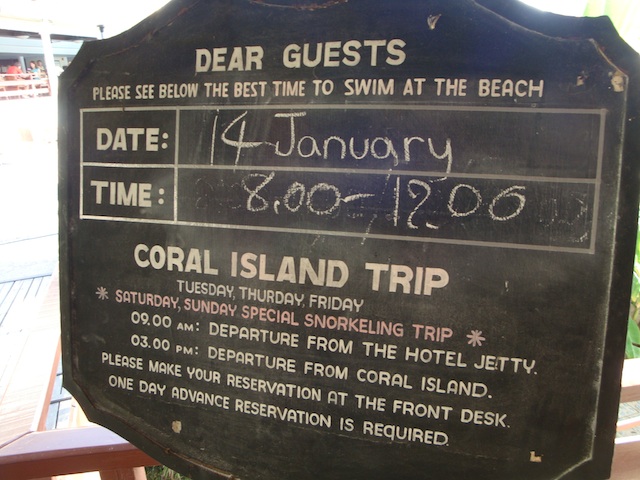 DEAR GUESTS
PLEASE SEE BELOW THE BEST TIME TO SWIM AT THE BEACH
DATE: 14 January
TIME: 8.00-12.00
CORAL ISLAND TRIP
TUESDAY, THURDAY, FRIDAY
* SATURDAY, SUNDAY SPECIAL SNORKELING TRIP *
09.00 AM: DEPARTURE FROM THE HOTEL JETTY.
03.00 PM: DEPARTURE FROM CORAL ISLAND.
PLEASE MAKE YOUR RESERVATION AT THE FRONT DESK.
ONE DAY ADVANCE RESERVATION IS REQUIRED.